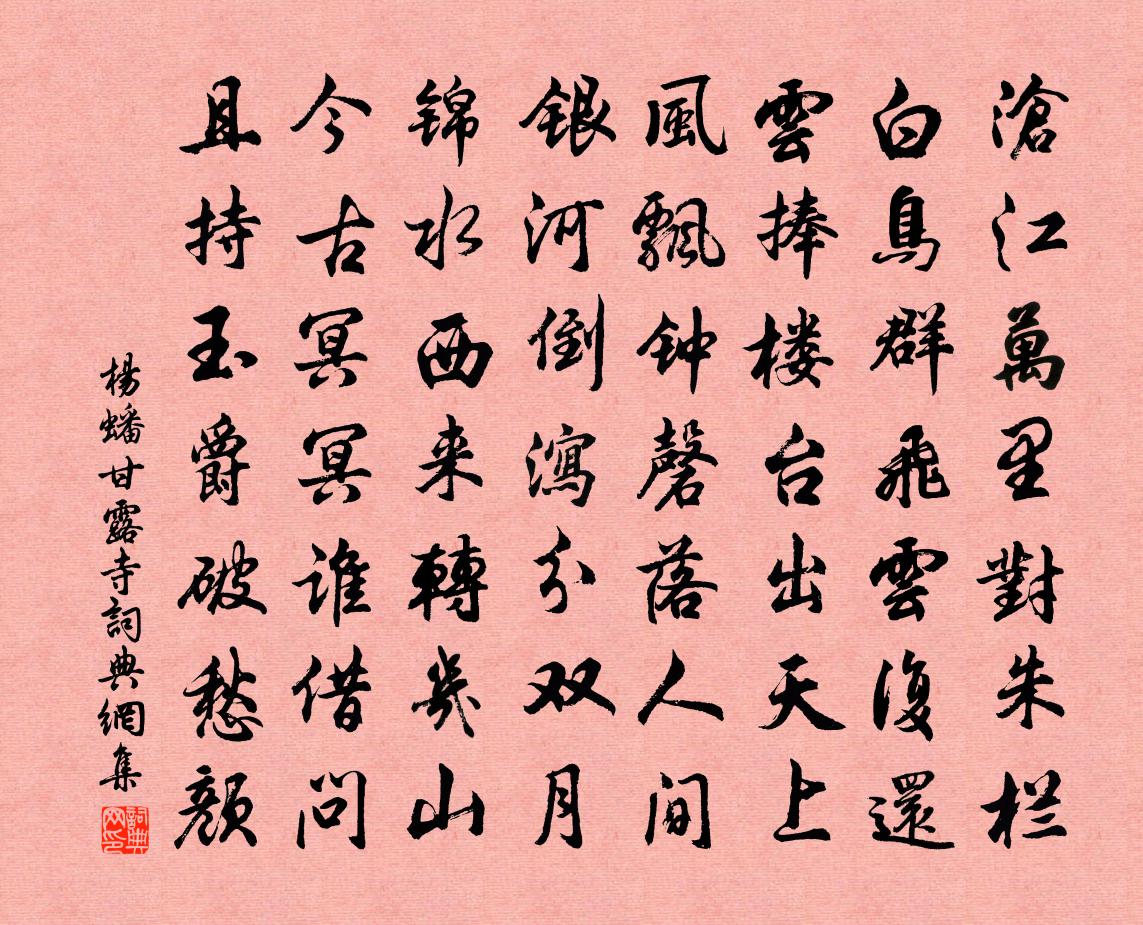 滄江萬里對朱栏
白鳥群飛雲復還
雲捧楼台出天上
風飄钟磬落人间
銀河倒瀉分双月
锦水西来轉幾山
今古冥冥谁借问
且持玉爵破愁颜
楊蟠甘露寺詞典網集
詞典网印